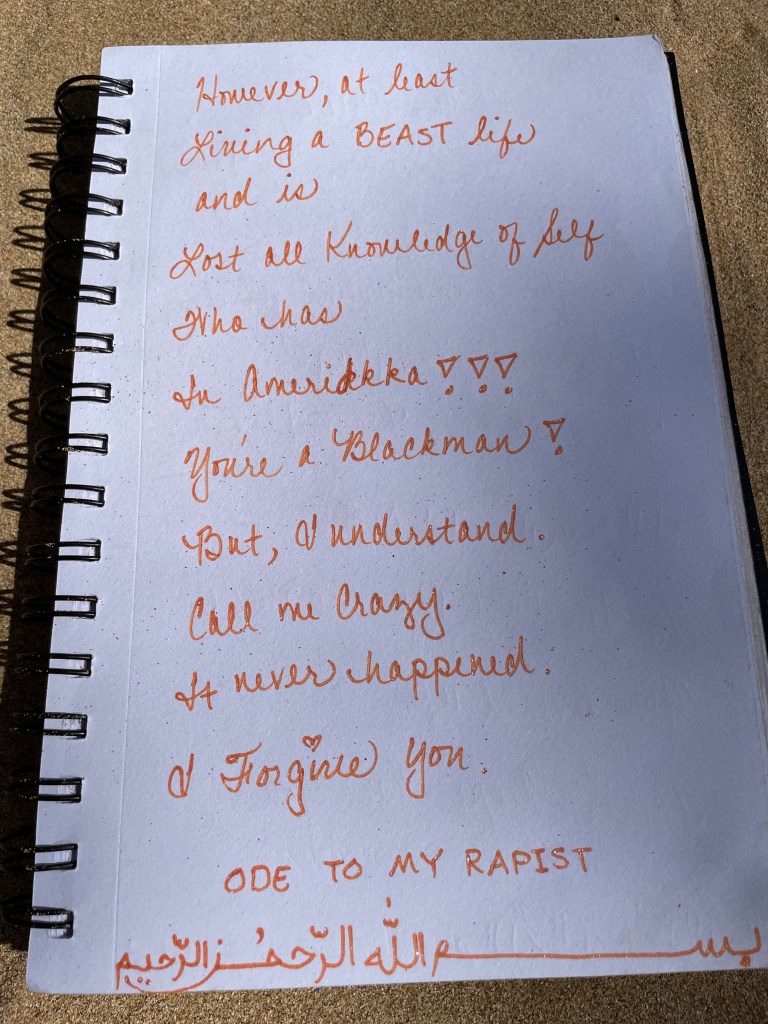 However, at least
Living a BEAST life
and is
Lost all Knowledge of Self
Who has
In Amerikkka!!!
You're a Blackman!
But, I understand.
Call me Crazy.
It never happened.
I Forgive You.
ODE TO MY RAPIST
بســـــم اللّٰه الرّحمٰـن الرّحيم